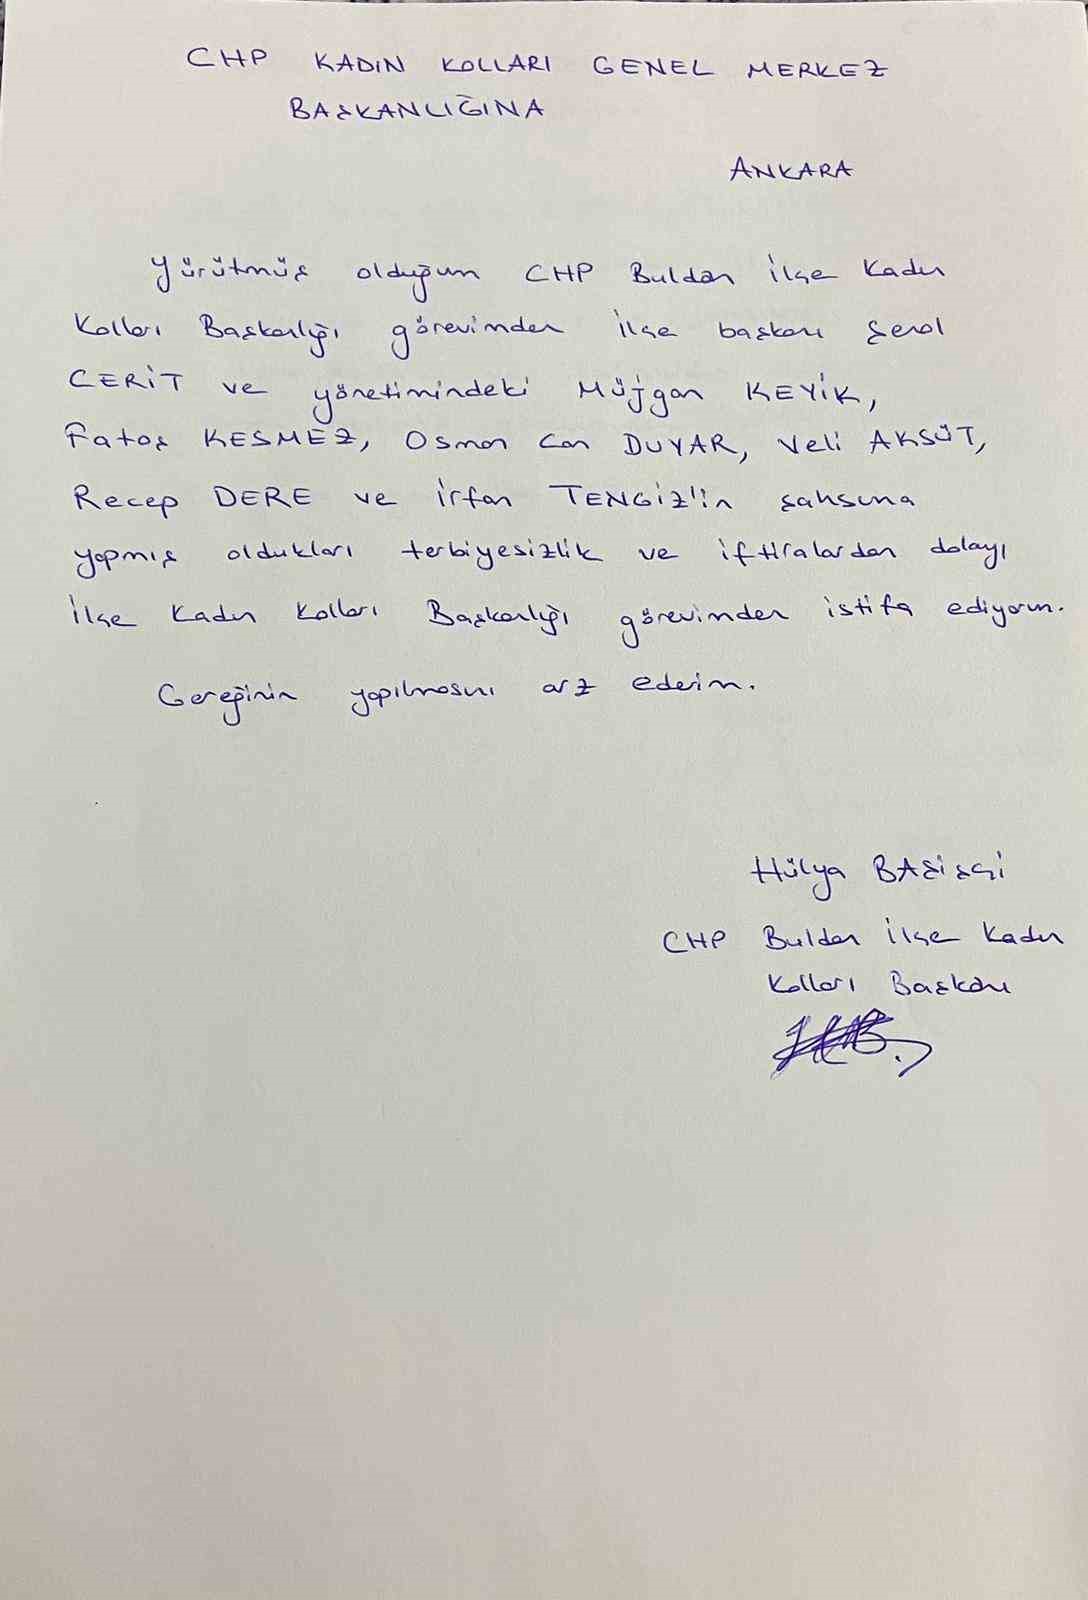 CHP KADIN KOLLARI GENEL MERKEZ
BAŞKANLIĞINA
ANKARA
Yürütmüş olduğum CHP Buldan İlçe Kadın
Kolları Başkanlığı görevimden ilçe başkanı Şerol
CERİT ve yönetimindeki Müjgan KEYİK,
Fatoş KESMEZ, Osman Can DUYAR, Veli AKSÜT,
Recep DERE ve İrfan TENGİZ'in şahsıma
yapmış oldukları terbiyesizlik ve iftiralardan dolayı
İlçe Kadın Kolları Başkanlığı görevimden istifa ediyorum.
Gereğinin yapılmasını arz ederim.
Hülya BAŞİŞÇİ
CHP Buldan İlçe Kadın
Kolları Başkanı